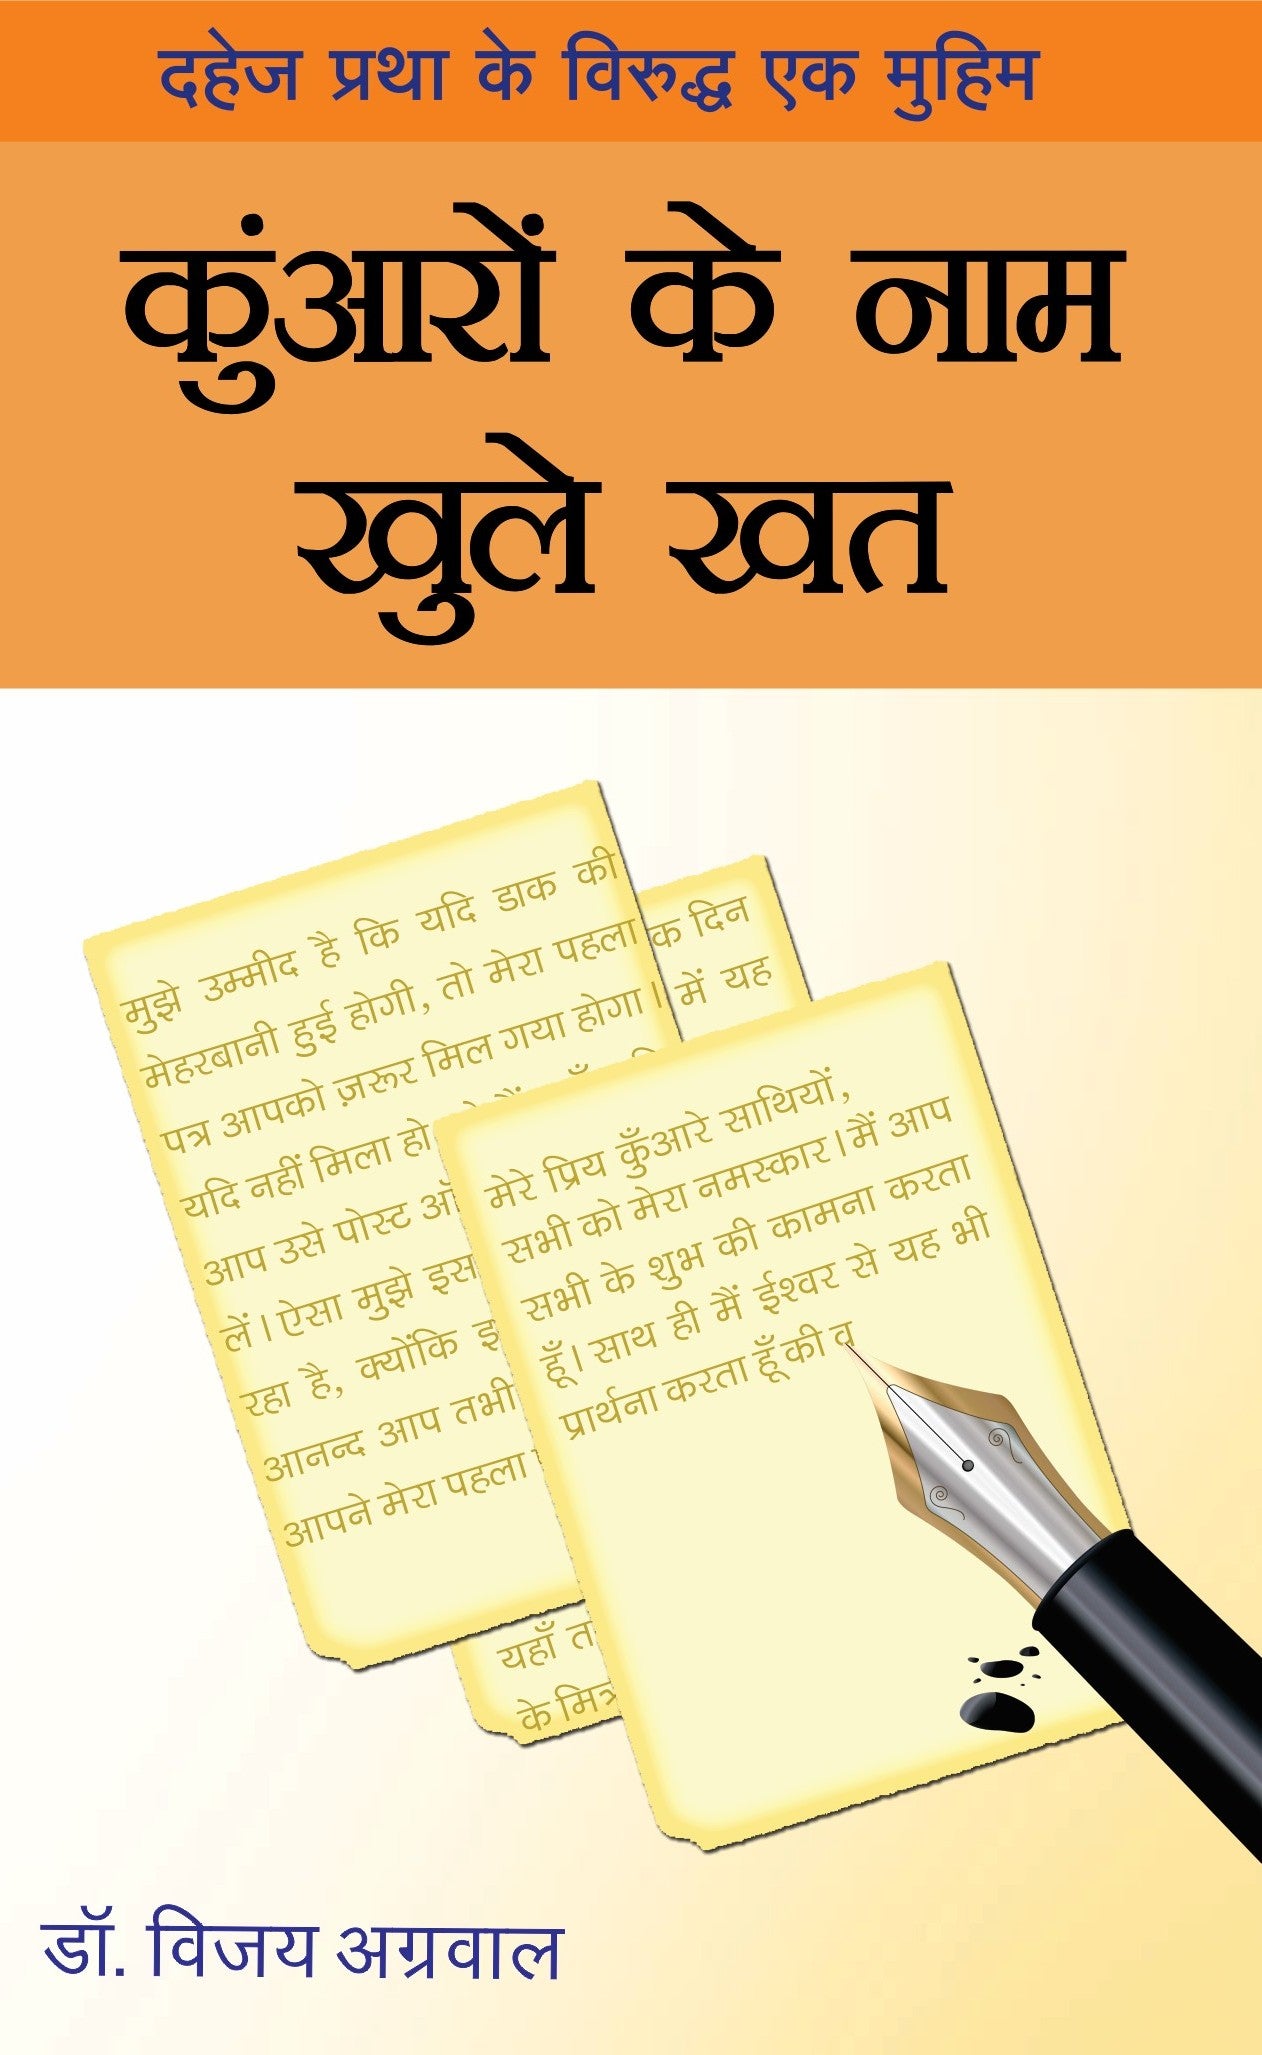 दहेज प्रथा के विरुद्ध एक मुहिम
कुंआरों के नाम
खुले खत
मुझे उम्मीद है कि यदि डाक की
मेहरबानी हुई होगी, तो मेरा पहला
पत्र आपको ज़रूर मिल गया होगा।
यदि नहीं मिला हो
आप उसे पोस्ट
लें। ऐसा मुझे इस
रहा है, क्योंकि
आनन्द आप तभी
आपने मेरा पहला
क दिन
में यह
यहाँ
के मित्र
मेरे प्रिय कुँआरे साथियों,
सभी को मेरा नमस्कार। मैं आप
सभी के शुभ की कामना करता
हूँ। साथ ही मैं ईश्वर से यह भी
प्रार्थना करता हूँ की व
डॉ. विजय अग्रवाल